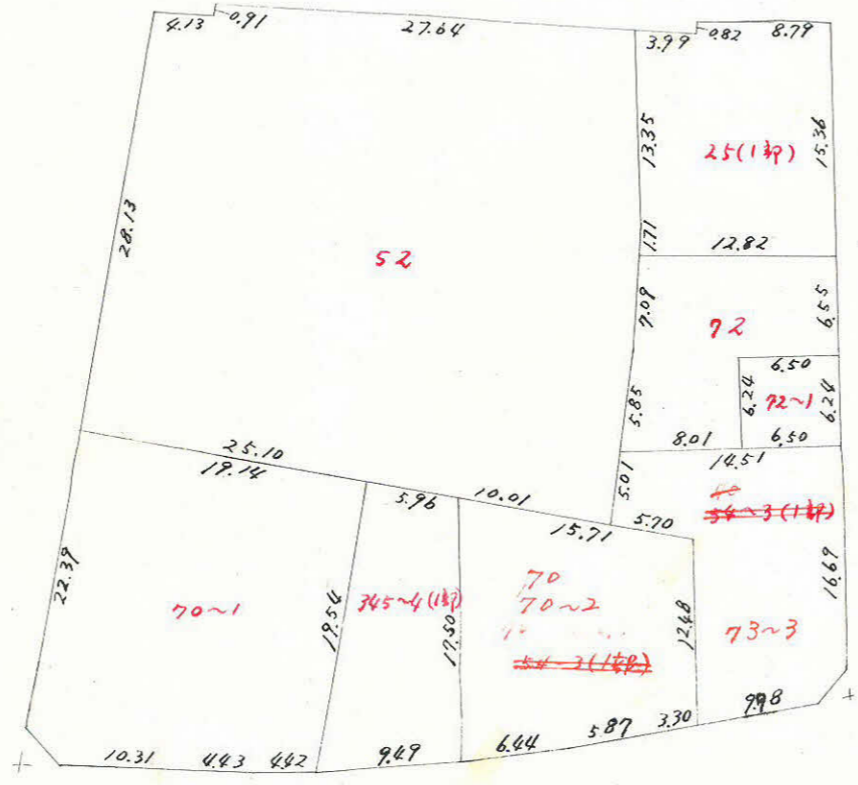 4.13
0.91
27.64
3.99
0.82
8.79
13.35
25(1部)
15.36
28.13
1.71
12.82
52
7.09
72
6.55
6.50
5.85
6.24
72~1
6.24
8.01
6.50
25.10
19.14
5.01
14.51
5.96
10.01
5.70
54~3(1部)
15.71
22.39
70~1
19.54
345~4(1部)
17.50
70
70~2
54~3(1部)
12.48
73~3
16.69
10.31
4.43
4.42
9.49
6.44
5.87
3.30
9.98